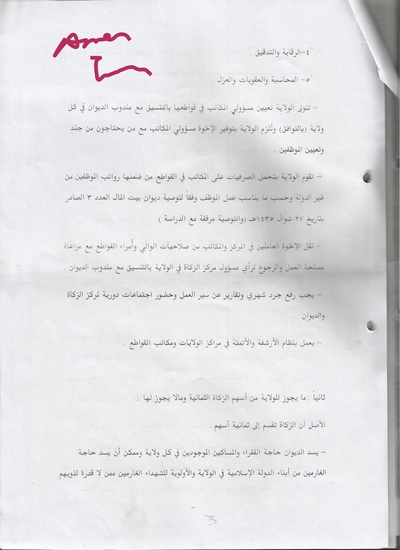 ٤-الرقابة والتدقيق .
٥- المحاسبة والعقوبات والعزل
– تتولى الولاية تعيين مسؤولي المكاتب في قواطعها بالتنسيق مع مندوب الديوان في كل
ولاية (بالتوافق) وتُلزم الولاية بتوفير الإخوة مسؤولي المكاتب مع من يحتاجون من جند
وتعيين الموظفين .
– تقوم الولاية بتحمل الصرفيات على المكاتب في القواطع من ضمنها رواتب الموظفين من
غير الدولة وحسب ما يناسب عمل الموظف وفقاً لتوصية ديوان بيت المال العدد ٣ الصادر
بتاريخ ٢٧ شوال ١٤٣٥هـ (والتوصية مرفقة مع الدراسة )
– نقل الإخوة العاملين في المركز والمكاتب من صلاحيات الوالي وأمراء القواطع مع مراعاة
مصلحة العمل والرجوع لرأي مسؤول مركز الزكاة في الولاية بالتنسيق مع مندوب الديوان
– يجب رفع جرد شهري وتقارير عن سير العمل وحضور اجتماعات دورية لمركز الزكاة
والديوان .
– يعمل بنظام الأرشفة والأتمتة في مراكز الولايات ومكاتب القواطع .
ثانياً :ما يجوز للولاية من أسهم الزكاة الثمانية ومالا يجوز لها :
الأصل أن الزكاة تقسم إلى ثمانية أسهم .
– يسد الديوان حاجة الفقراء والمساكين الموجودين في كل ولاية وممكن أن يسد حاجة
الغارمين من أبناء الدولة الإسلامية في الولاية والأولوية للشهداء الغارمين ممن لا قدرة لذويهم
3